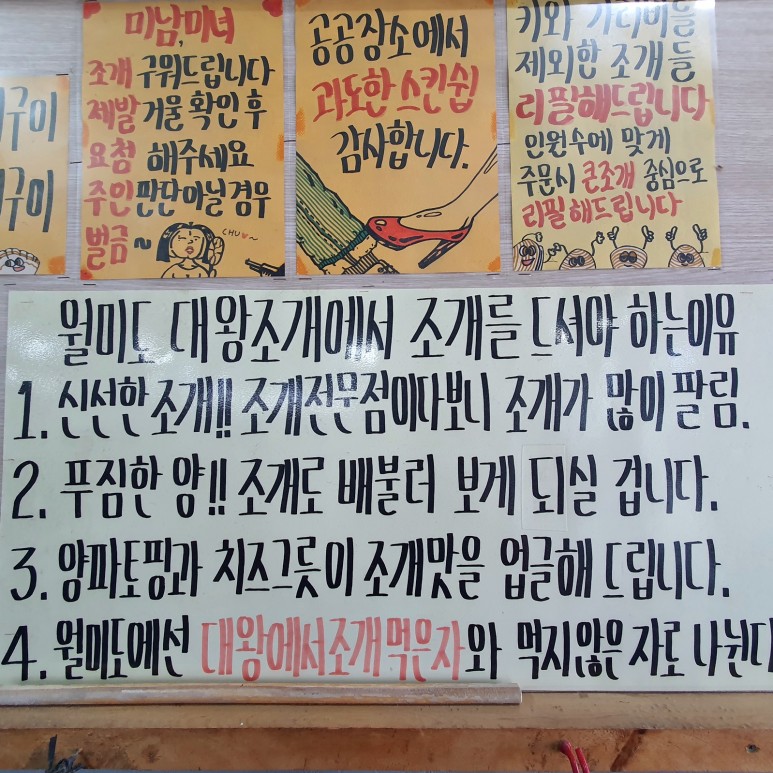 구이
구이
미남,미녀
조개 구워드립니다
제발 거울 확인 후
요청 해주세요
주인 판단 아닐 경우
벌금~
CHU♥~
공공장소에서
과도한 스킨쉽
감사합니다.
제외한 조개들
리필해드립니다
인원수에 맞게
주문시 큰조개 중심으로
리필해드립니다
월미도 대왕조개에서 조개를 드셔야 하는이유
1. 신선한 조개!! 조개전문점이다보니 조개가 많이 팔림.
2. 푸짐한 양!! 조개로 배불러 보게 되실 겁니다.
3. 양파토핑과 치즈그릇이 조개맛을 업글해 드립니다.
4. 월미도에선 대왕에서조개먹은자와 먹지않은 자로 나뉜다